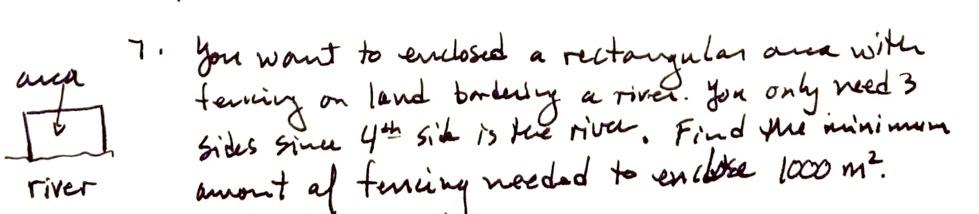 7. You want to enclosed a rectangular area with
area
fencing on land bordering a river. You only need 3
sides since 4th side is the river. Find the minimum
river
amount of fencing needed to enclose 1000 m².